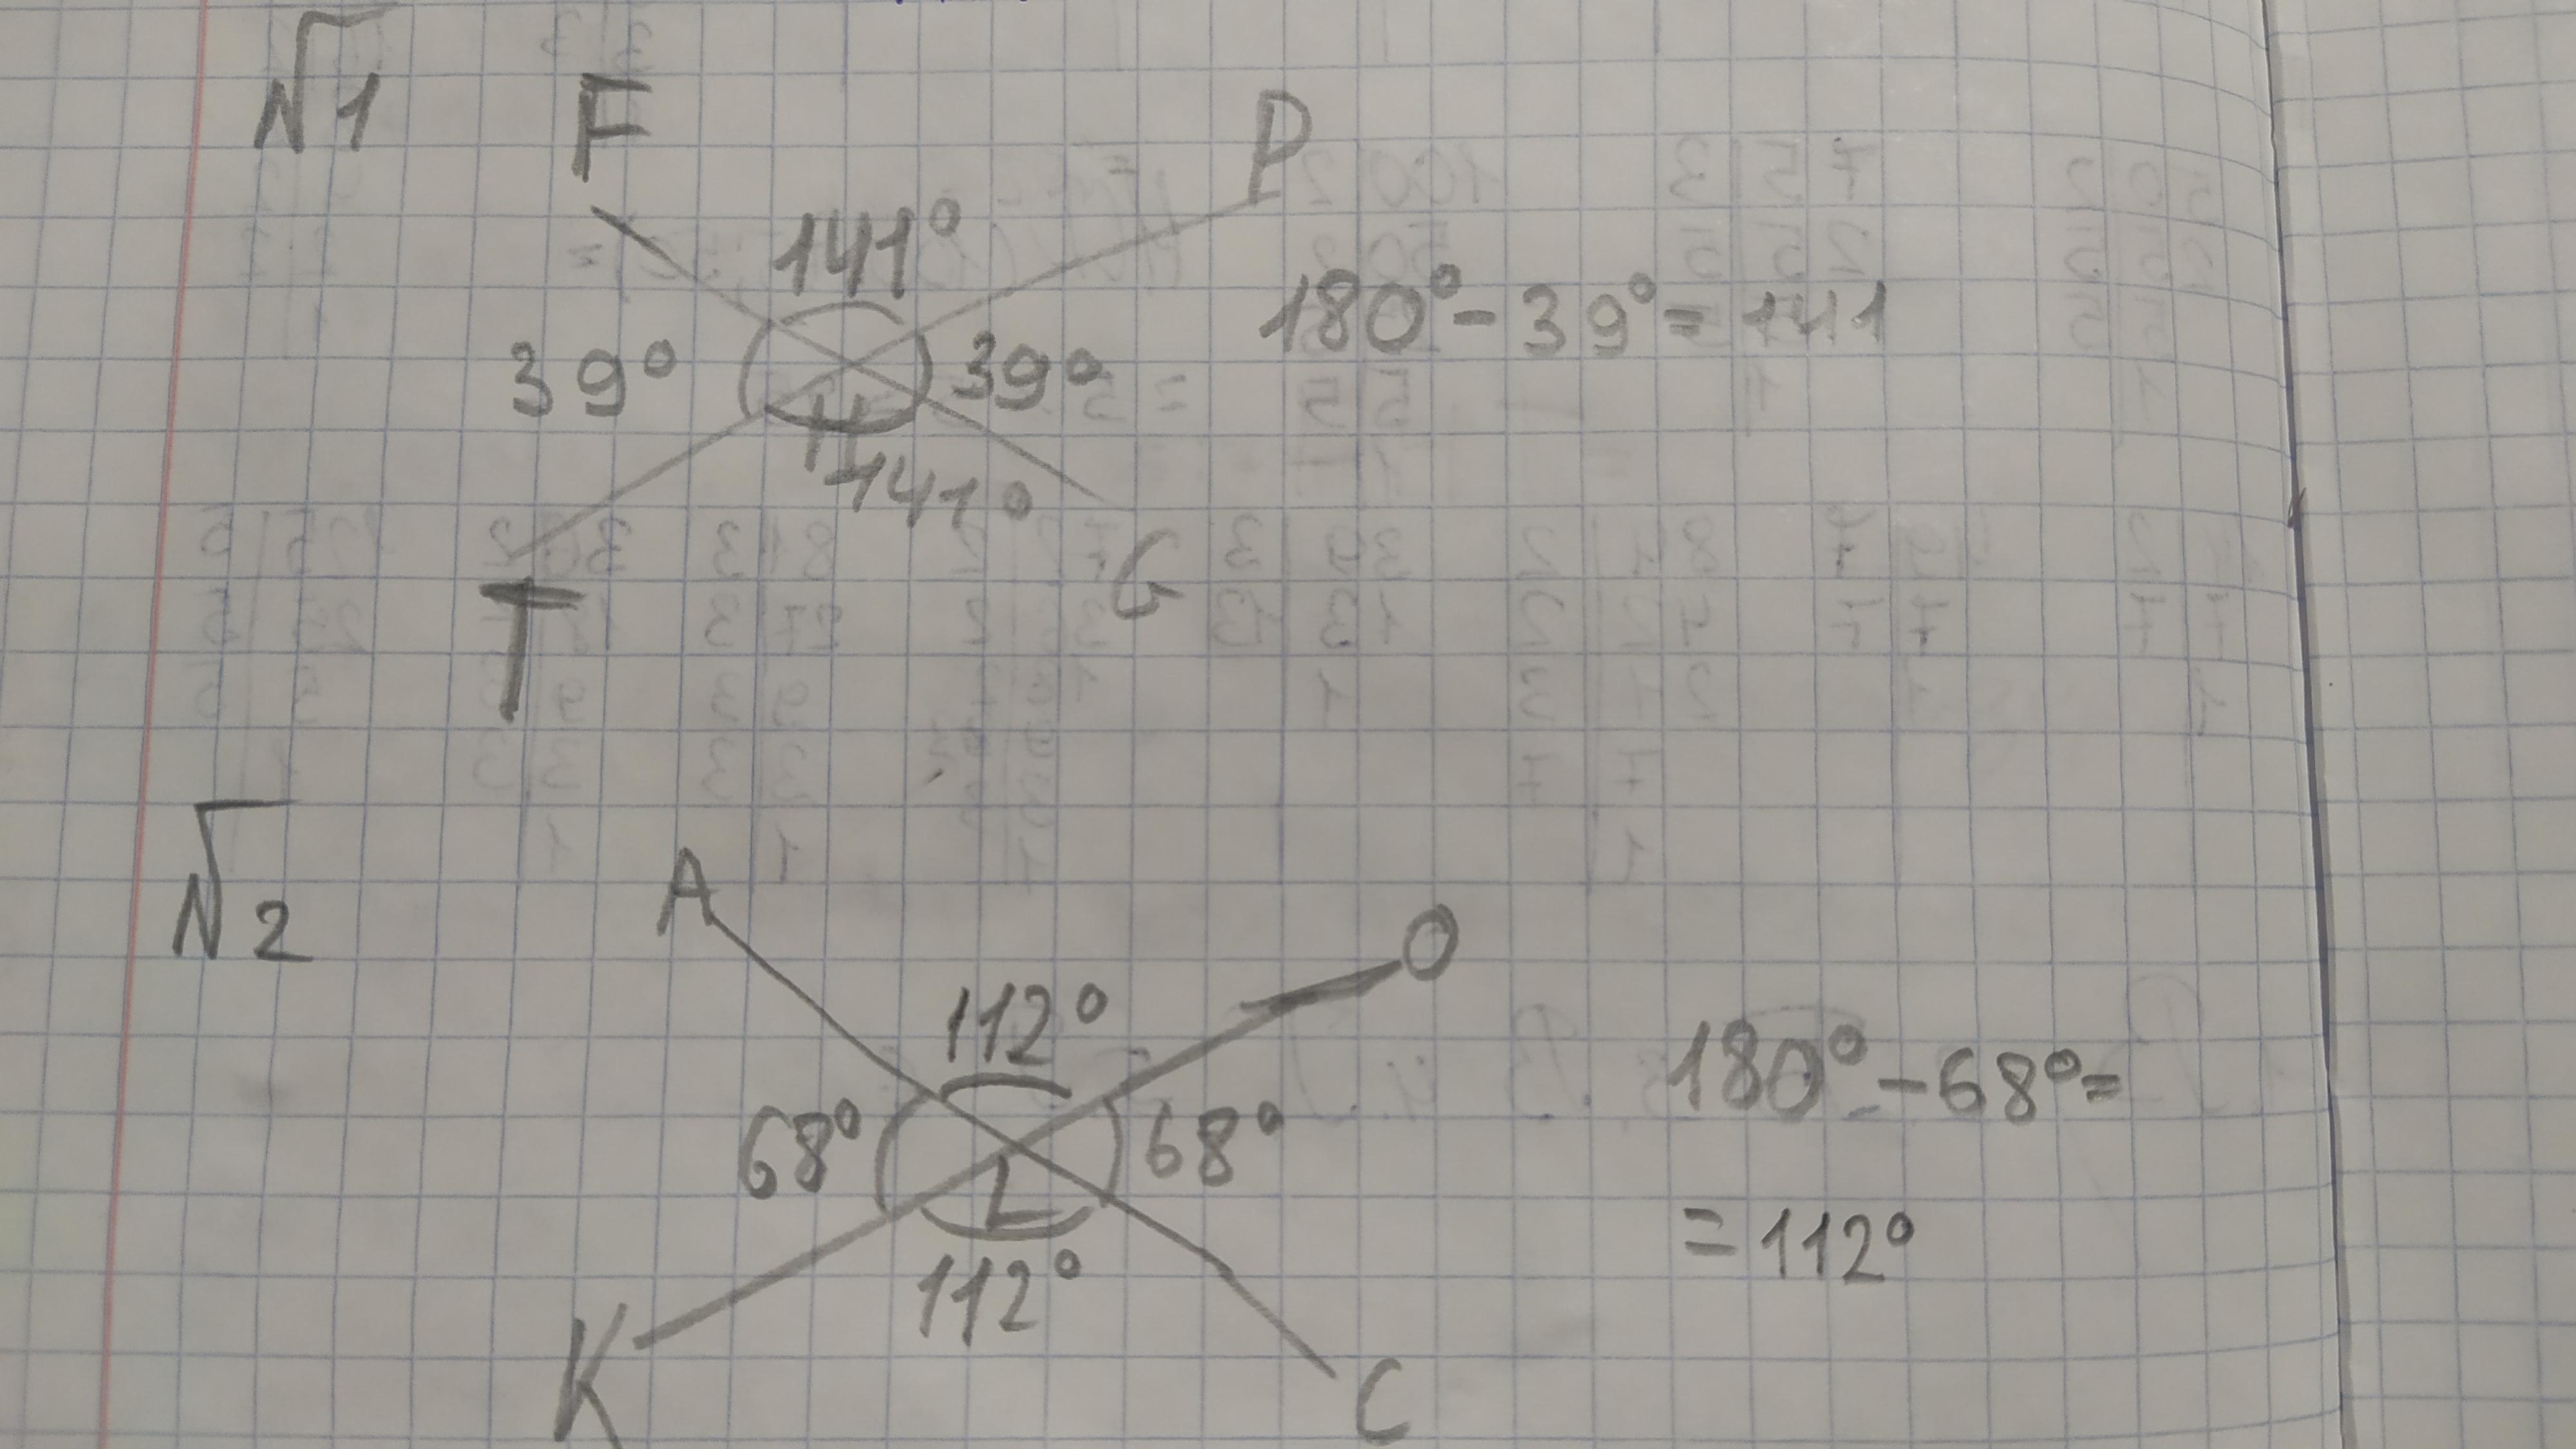 №1
F
P
141°
180° - 39° = 141
39°
39°
H
141°
G
T
№2
A
O
112°
180° - 68° =
68°
68°
L
= 112°
112°
K
C